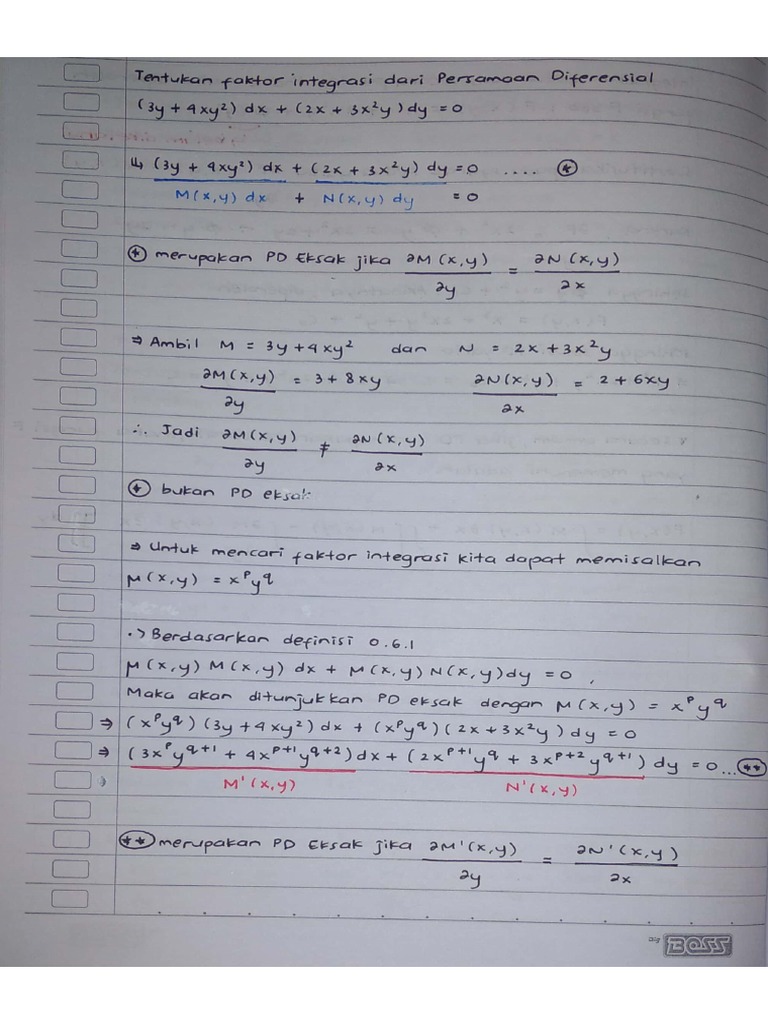 Tentukan faktor integrasi dari Persamaan Diferensial
(3y + 4xy²) dx + (2x + 3x²y) dy = 0
↳ (3y + 4xy²) dx + (2x + 3x²y) dy = 0 .... (*)
M(x,y) dx + N(x,y) dy = 0
(*) merupakan PD Eksak jika ∂M(x,y)/∂y = ∂N(x,y)/∂x
⇒ Ambil M = 3y + 4xy² dan N = 2x + 3x²y
∂M(x,y)/∂y = 3 + 8xy ∂N(x,y)/∂x = 2 + 6xy
∴ Jadi ∂M(x,y)/∂y ≠ ∂N(x,y)/∂x
(*) bukan PD eksak
⇒ Untuk mencari faktor integrasi kita dapat memisalkan
μ(x,y) = xᵖy^q
·> Berdasarkan definisi 0.6.1
μ(x,y) M(x,y) dx + μ(x,y) N(x,y) dy = 0 ,
Maka akan ditunjukkan PD eksak dengan μ(x,y) = xᵖy^q
⇒ (xᵖy^q) (3y + 4xy²) dx + (xᵖy^q) (2x + 3x²y) dy = 0
⇒ (3xᵖy^(q+1) + 4x^(p+1)y^(q+2)) dx + (2x^(p+1)y^q + 3x^(p+2)y^(q+1)) dy = 0 ... (**)
M'(x,y) N'(x,y)
(**) merupakan PD Eksak jika ∂M'(x,y)/∂y = ∂N'(x,y)/∂x
BOSS